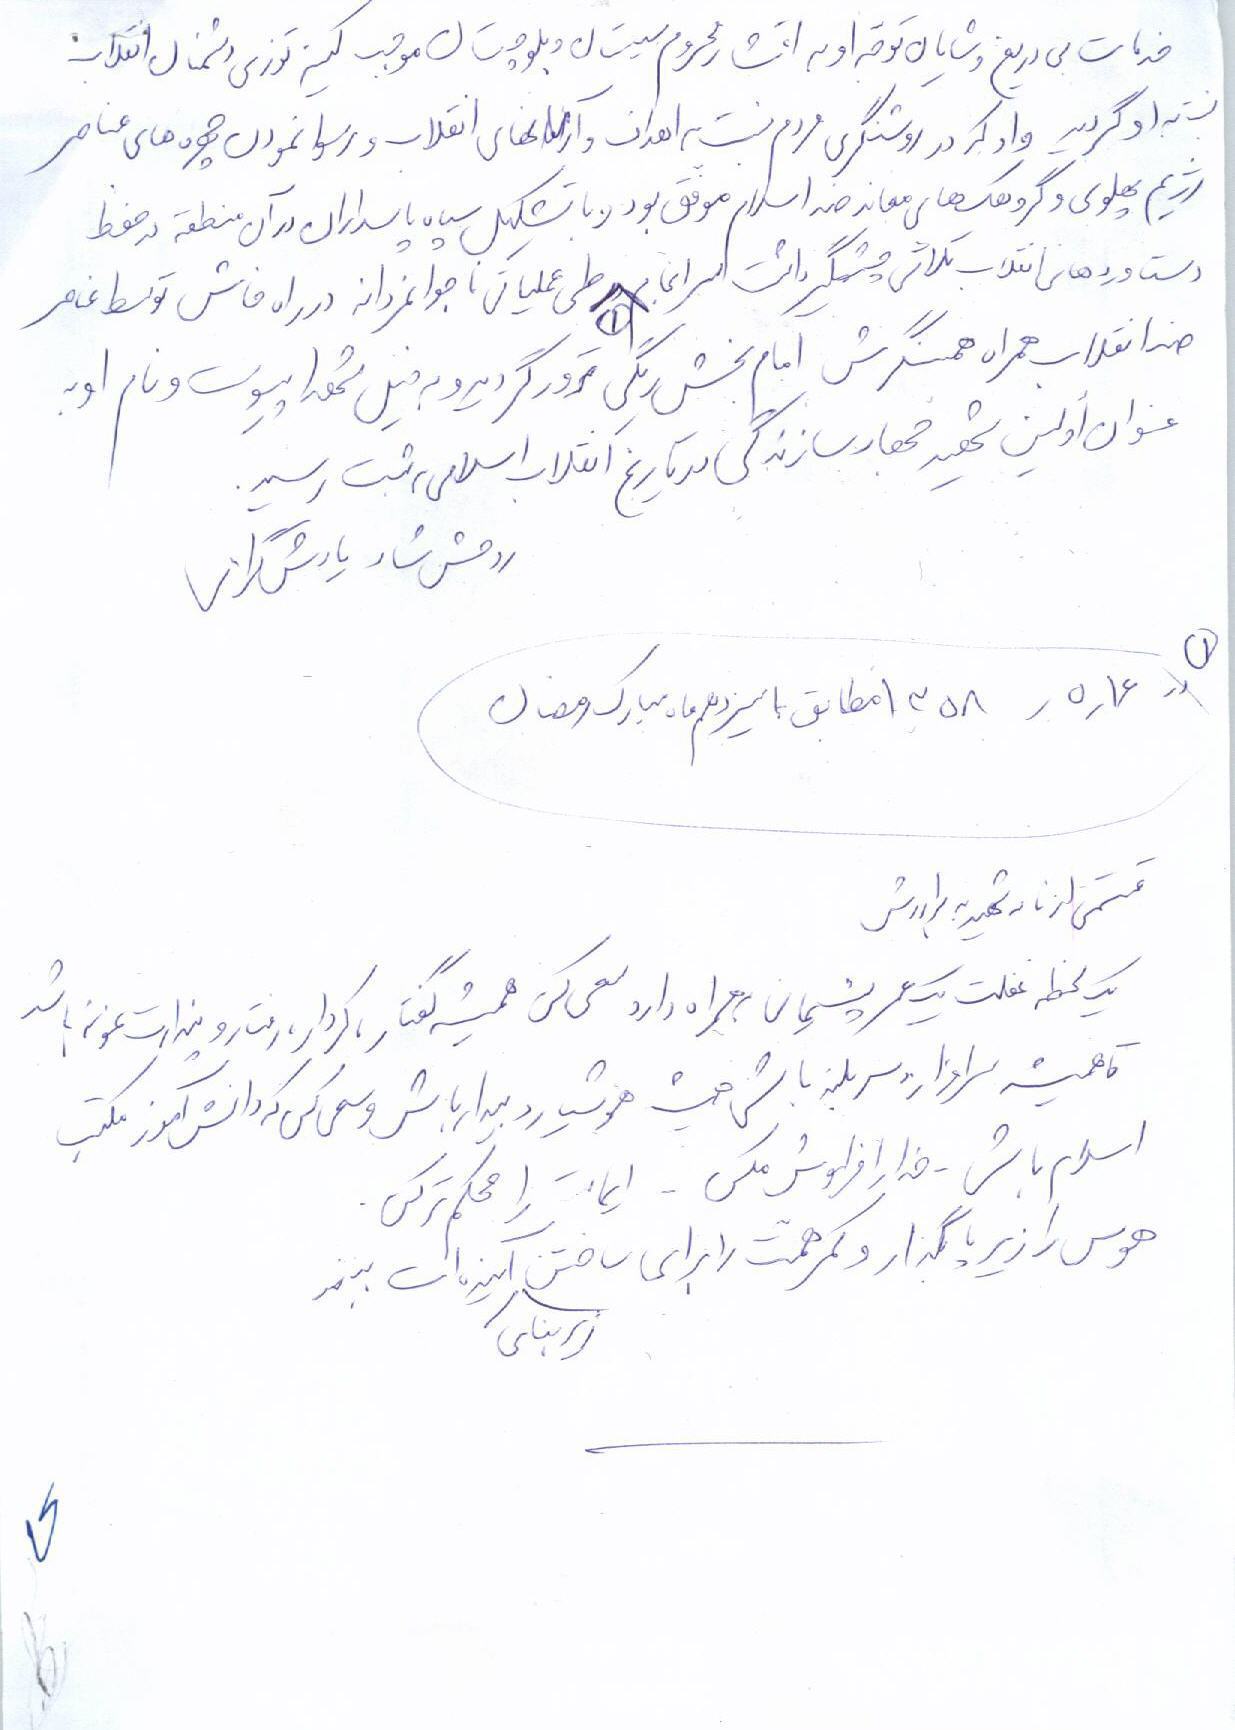 خدمات بی دریغ و شایان توجه او به اقشار محروم سیستان و بلوچستان موجب کینه توزی دشمنان انقلاب
نسبت به او گردید و او که در روشنگری مردم نسبت به اهداف و آرمانهای انقلاب و رسوا نمودن چهره های عناصر
رژیم پهلوی و گروهک های معاند ضد اسلام موفق بود و با تشکیل سپاه پاسداران در آن منطقه در حفظ
دستاوردهای انقلاب تلاش چشمگیر داشت سرانجام طی عملیاتی ناجوانمردانه در راه خاش توسط عناصر
①
ضد انقلاب همراه همسنگرش امام بخش ریگی ترور گردید و به خیل شهدا پیوست و نام او به
عنوان اولین شهید جهاد سازندگی در تاریخ انقلاب اسلامی به ثبت رسید.
روحش شاد یادش گرامی
①
در ۱۶ر۵ر ۱۳۵۸ مطابق با سیزدهم ماه مبارک رمضان
قسمتی از نامه شهید به برادرش
یک لحظه غفلت یک عمر پشیمانی به همراه دارد سعی کن همیشه گفتار، کردار، رفتار و پندارت نمونه باشد
تا همیشه سرافراز و سربلند باشی همیشه هوشیار و بیدار باش و سعی کن که دانش آموز مکتب
اسلام باش - خدا را فراموش مکن - ایمانت را محکم تر کن.
هوس را زیر پا بگذار و کمر همت را برای ساختن آینده ات ببند
زیربنای